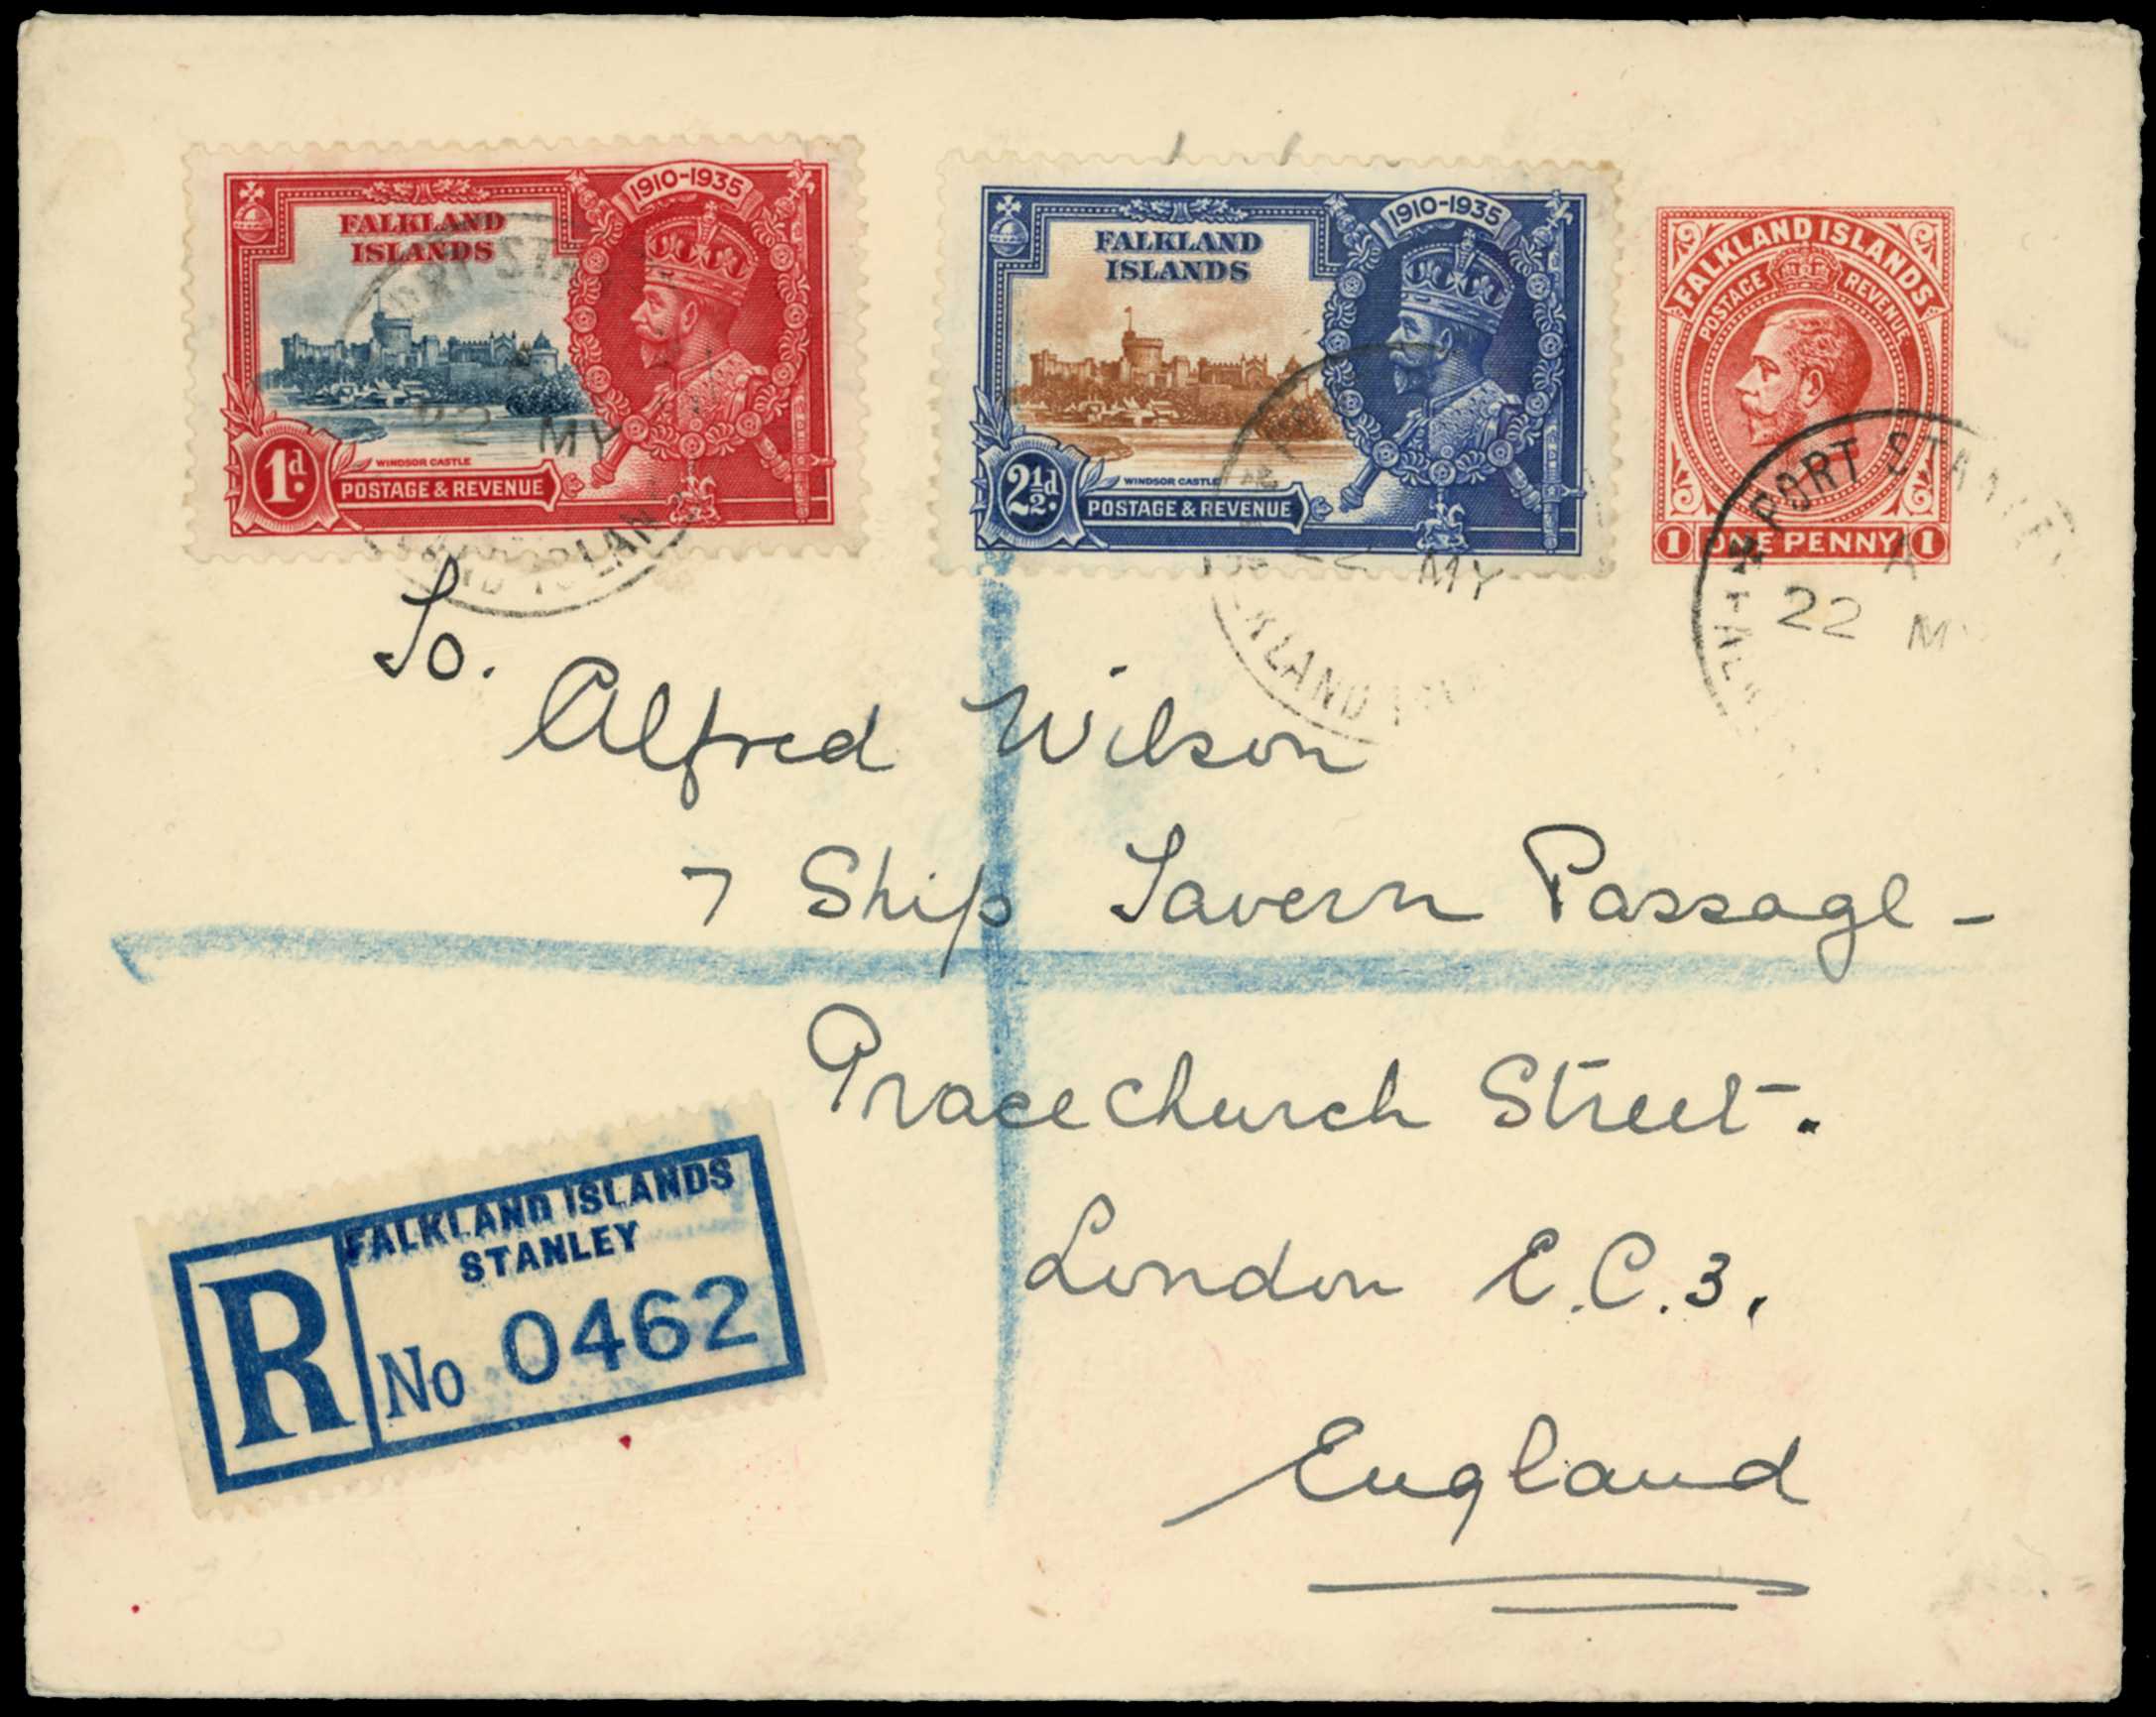 1910-1935
FALKLAND
ISLANDS
WINDSOR CASTLE
1d.
POSTAGE & REVENUE
1910-1935
FALKLAND
ISLANDS
WINDSOR CASTLE
2½d.
POSTAGE & REVENUE
FALKLAND ISLANDS
POSTAGE REVENUE
1 ONE PENNY 1
PORT STANLEY
A
22 MY
22 MY
22 MY
To.
Alfred Wilson
7 Ship Tavern Passage -
Gracechurch Street.
London E.C.3.
England
FALKLAND ISLANDS
STANLEY
R No 0462